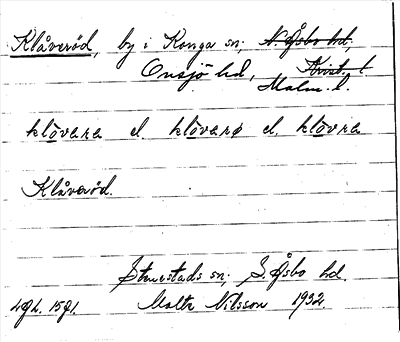 Klåveröd, by i Konga sn; N. Åsbo hd,
Onsjö hd, Krist. l
Malm. l.
klövara el. klövarø el. klövra
Klåveröd.
Stenestads sn; S. Åsbo hd.
Malte Nilsson 1932.